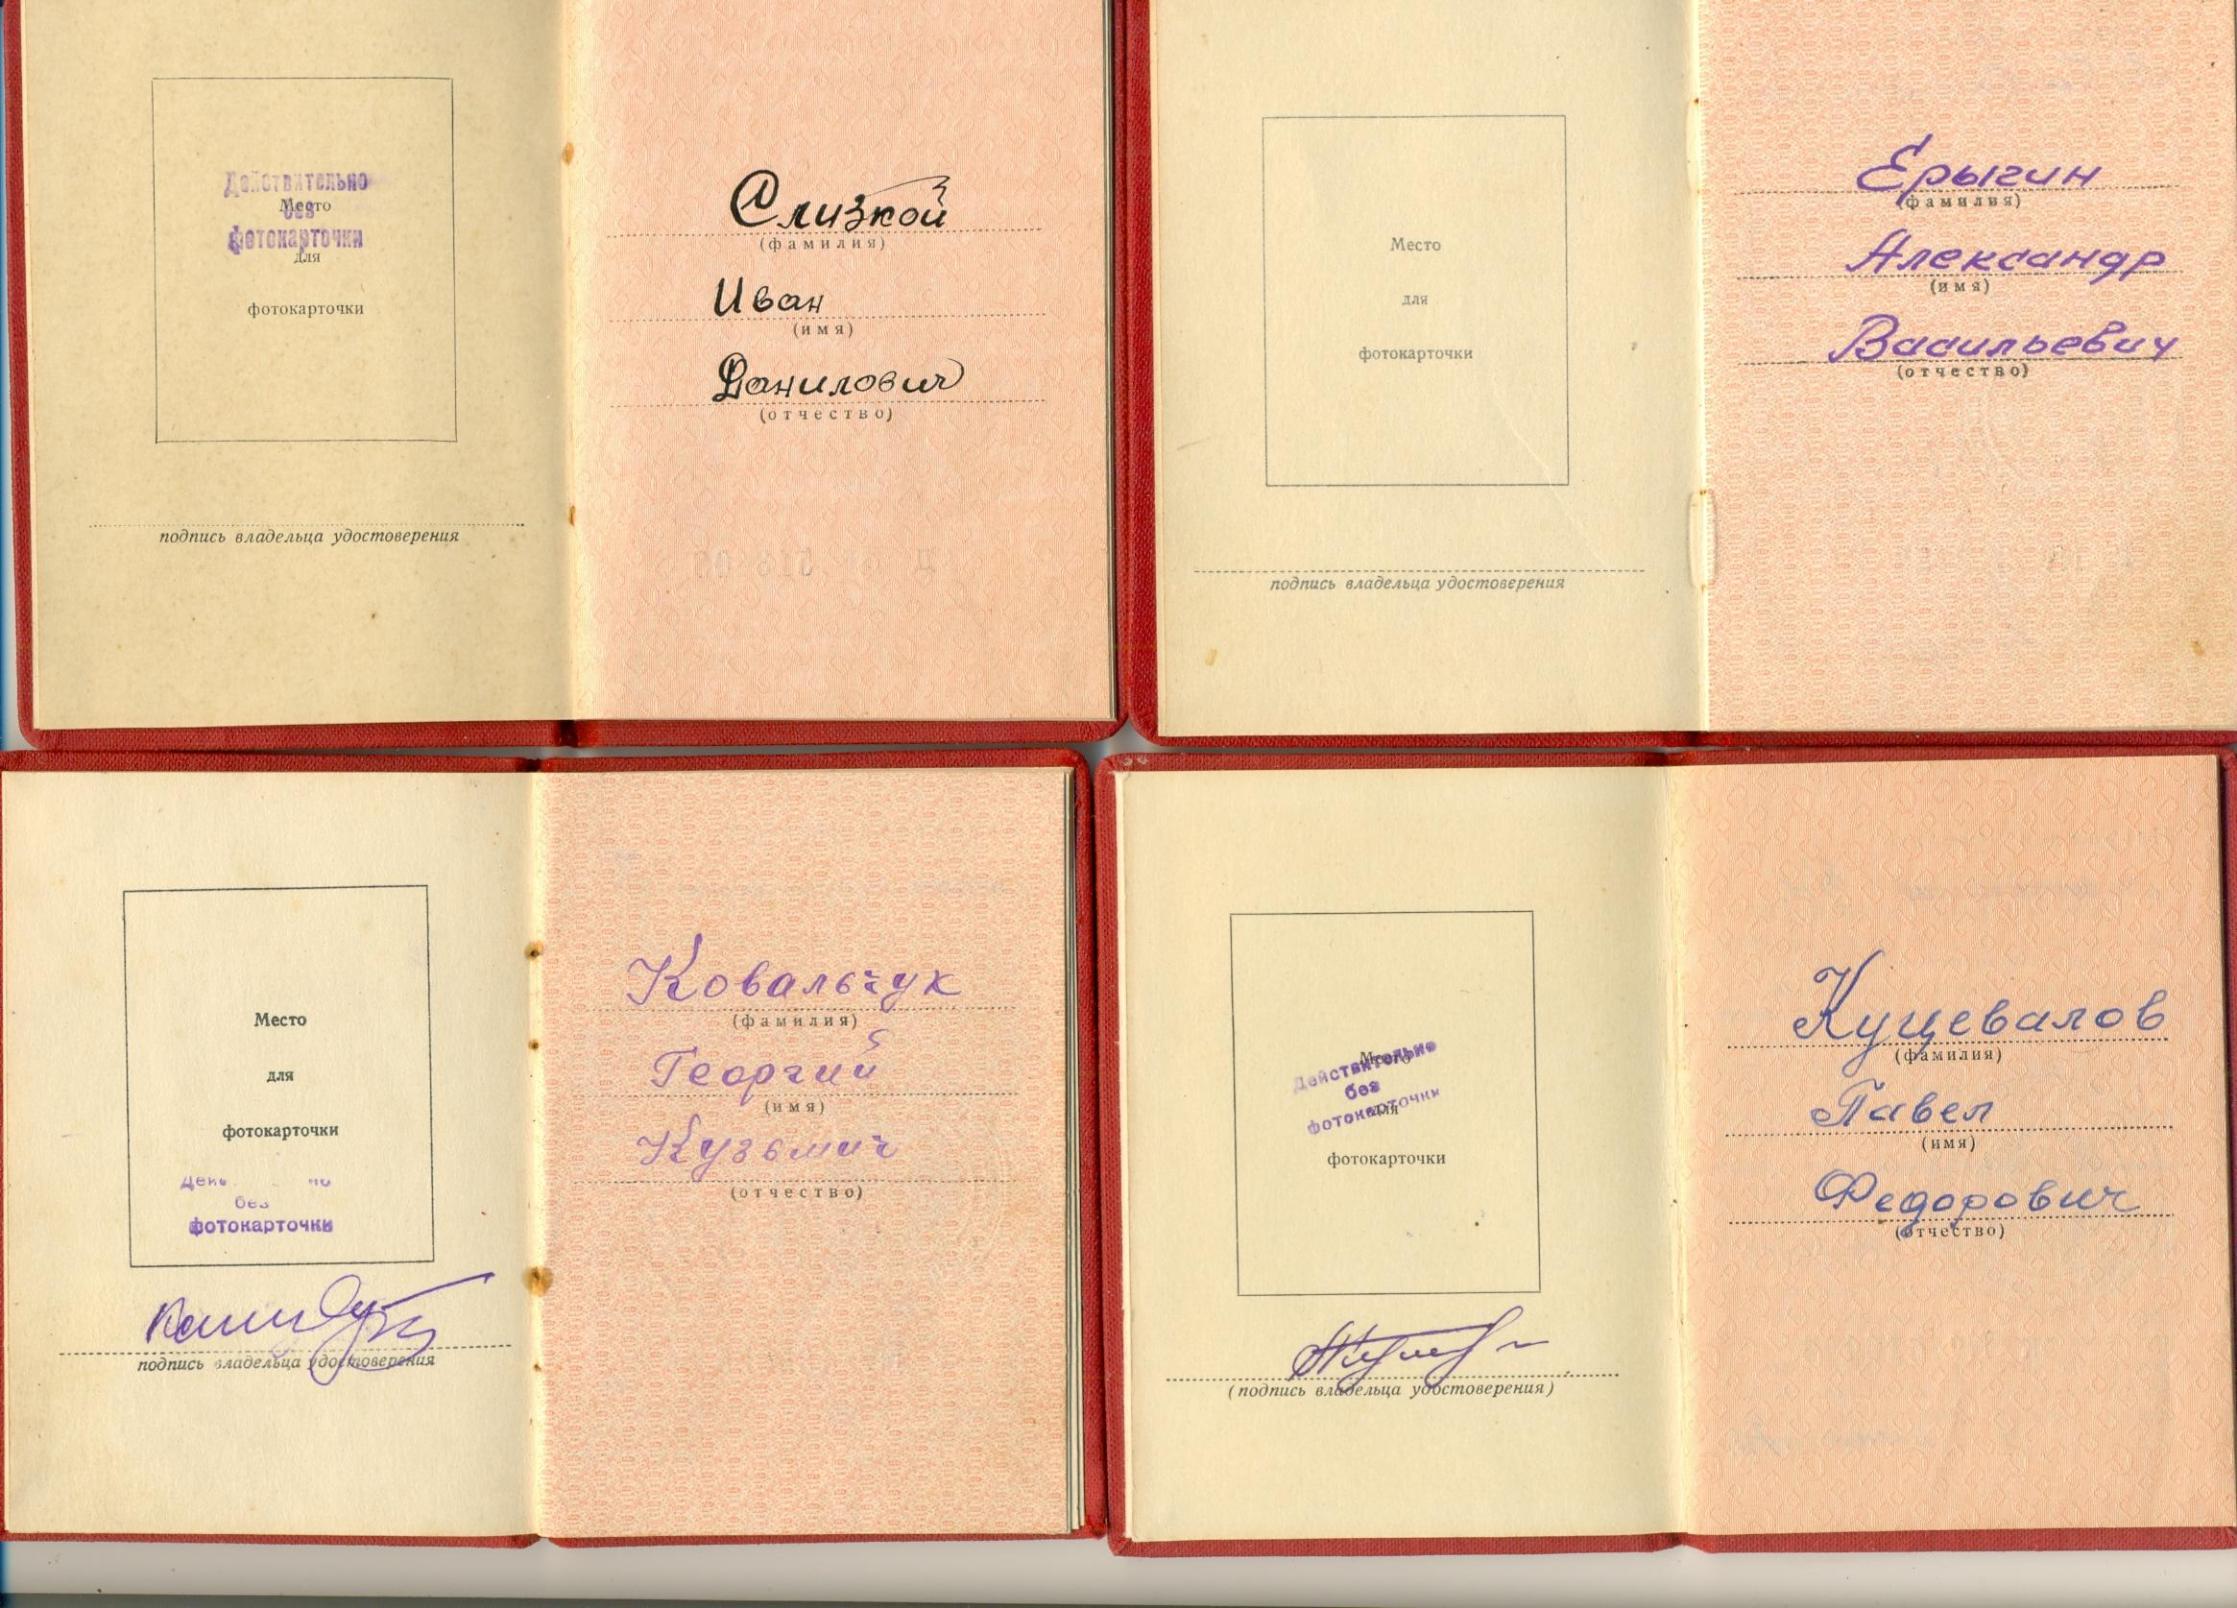 Действительно
Место
без
фотокарточки
для
фотокарточки
подпись владельца удостоверения
Слизкой
(фамилия)
Иван
(имя)
Данилович
(отчество)
Место
для
фотокарточки
подпись владельца удостоверения
Ерыгин
(фамилия)
Александр
(имя)
Васильевич
(отчество)
Место
для
фотокарточки
без
фотокарточки
подпись владельца удостоверения
Ковальчук
(фамилия)
Георгий
(имя)
Кузьмич
(отчество)
Место
Действительно
без
для
фотокарточки
фотокарточки
(подпись владельца удостоверения)
Куцевалов
(фамилия)
Павел
(имя)
Федорович
(отчество)